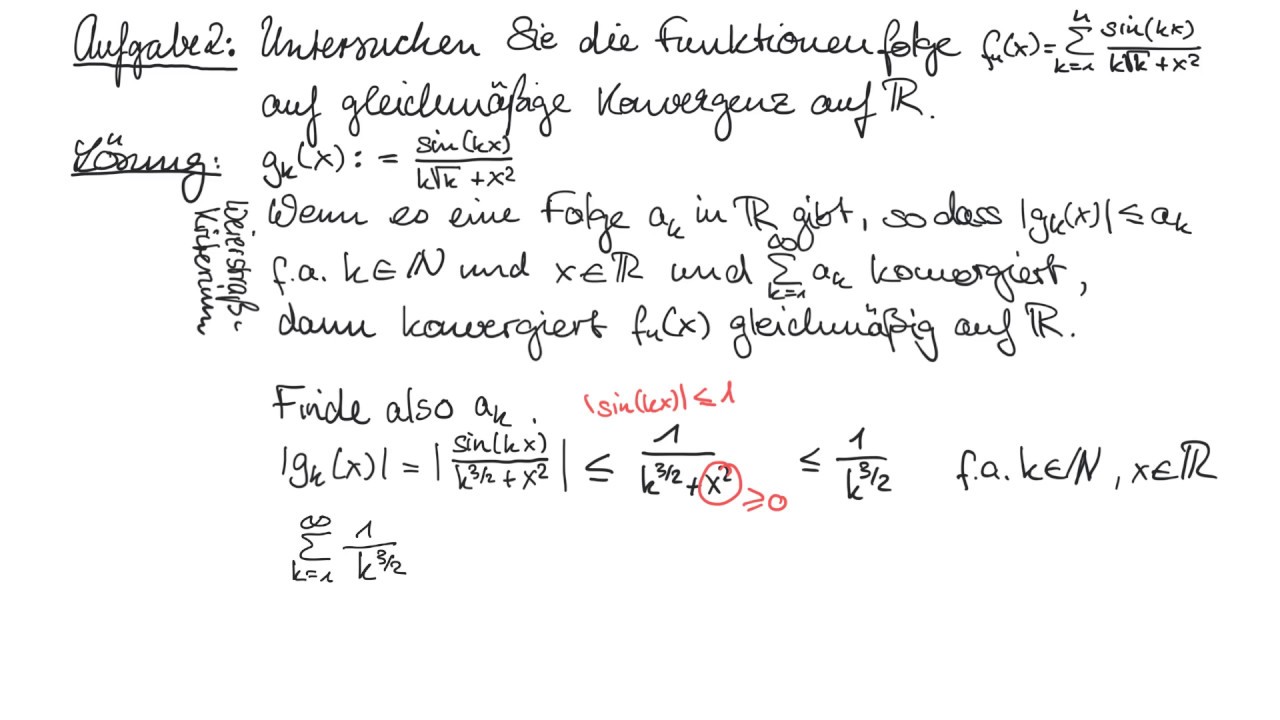 Aufgabe 2: Untersuchen Sie die Funktionenfolge fₙ(x) = ∑ₖ₌₁ⁿ sin(kx)/(k√k + x²)
auf gleichmäßige Konvergenz auf ℝ.
Lösung: gₖ(x) := sin(kx)/(k√k + x²)
Weierstraß-
Kriterium
Wenn es eine Folge aₖ in ℝ gibt, so dass |gₖ(x)| ≤ aₖ
f.a. k ∈ ℕ und x ∈ ℝ und ∑ₖ₌₁^∞ aₖ konvergiert,
dann konvergiert fₙ(x) gleichmäßig auf ℝ.
Finde also aₖ. |sin(kx)| ≤ 1
|gₖ(x)| = |sin(kx)/(k^{3/2} + x²)| ≤ 1/(k^{3/2} + x²) ≥ 0 ≤ 1/k^{3/2} f.a. k ∈ ℕ, x ∈ ℝ
∑ₖ₌₁^∞ 1/k^{3/2}